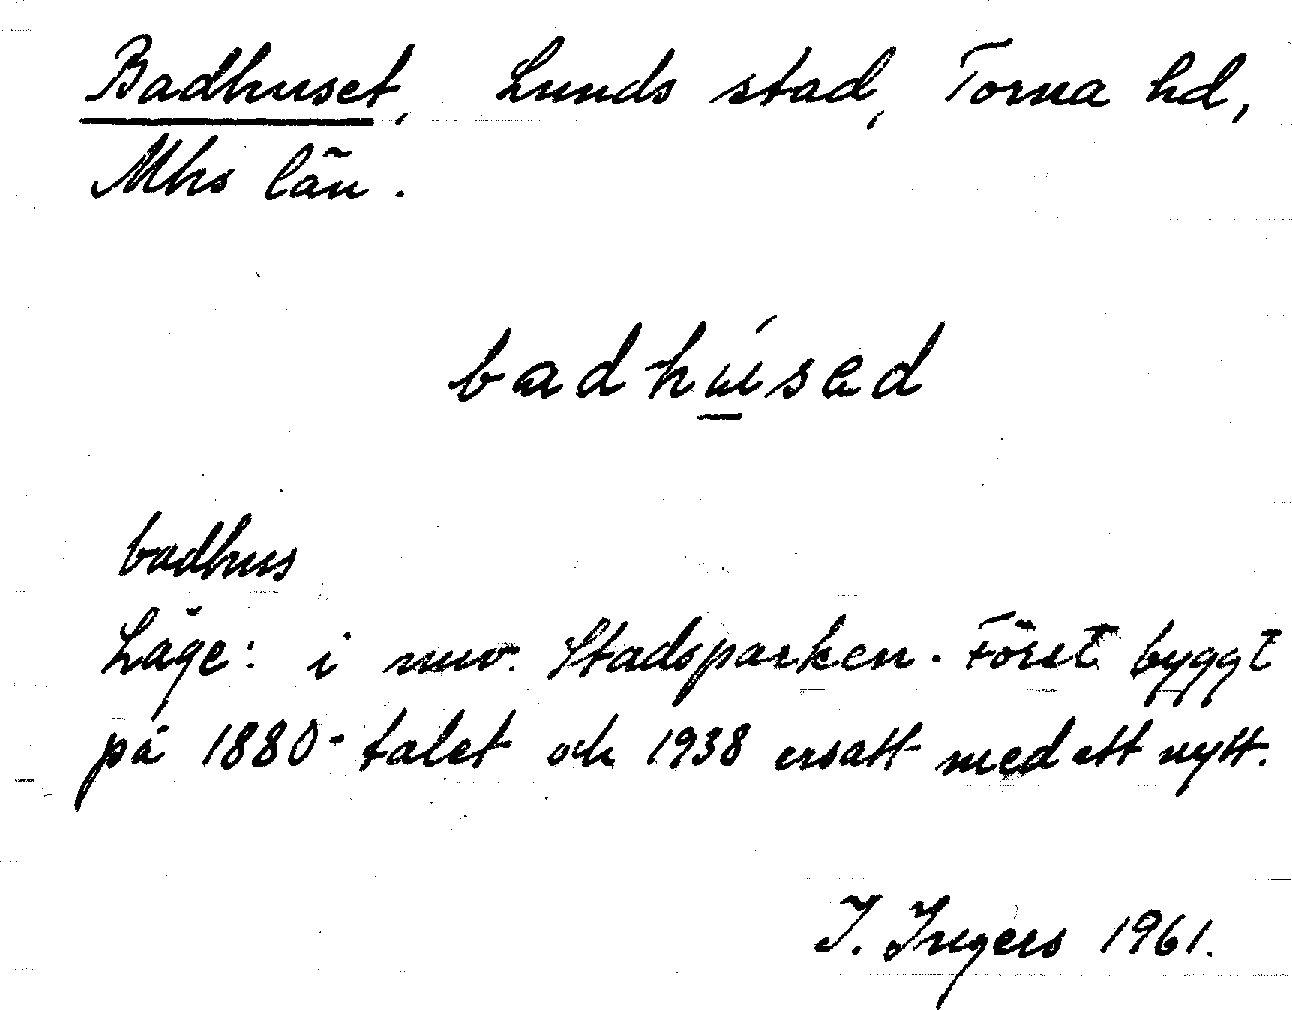 Badhuset, Lunds stad, Torna hd,
Mhs län.
badhú̲səd
badhus
Läge: i nuv. Stadsparken. Först byggt
på 1880-talet och 1938 ersatt med ett nytt.
I. Ingers 1961.